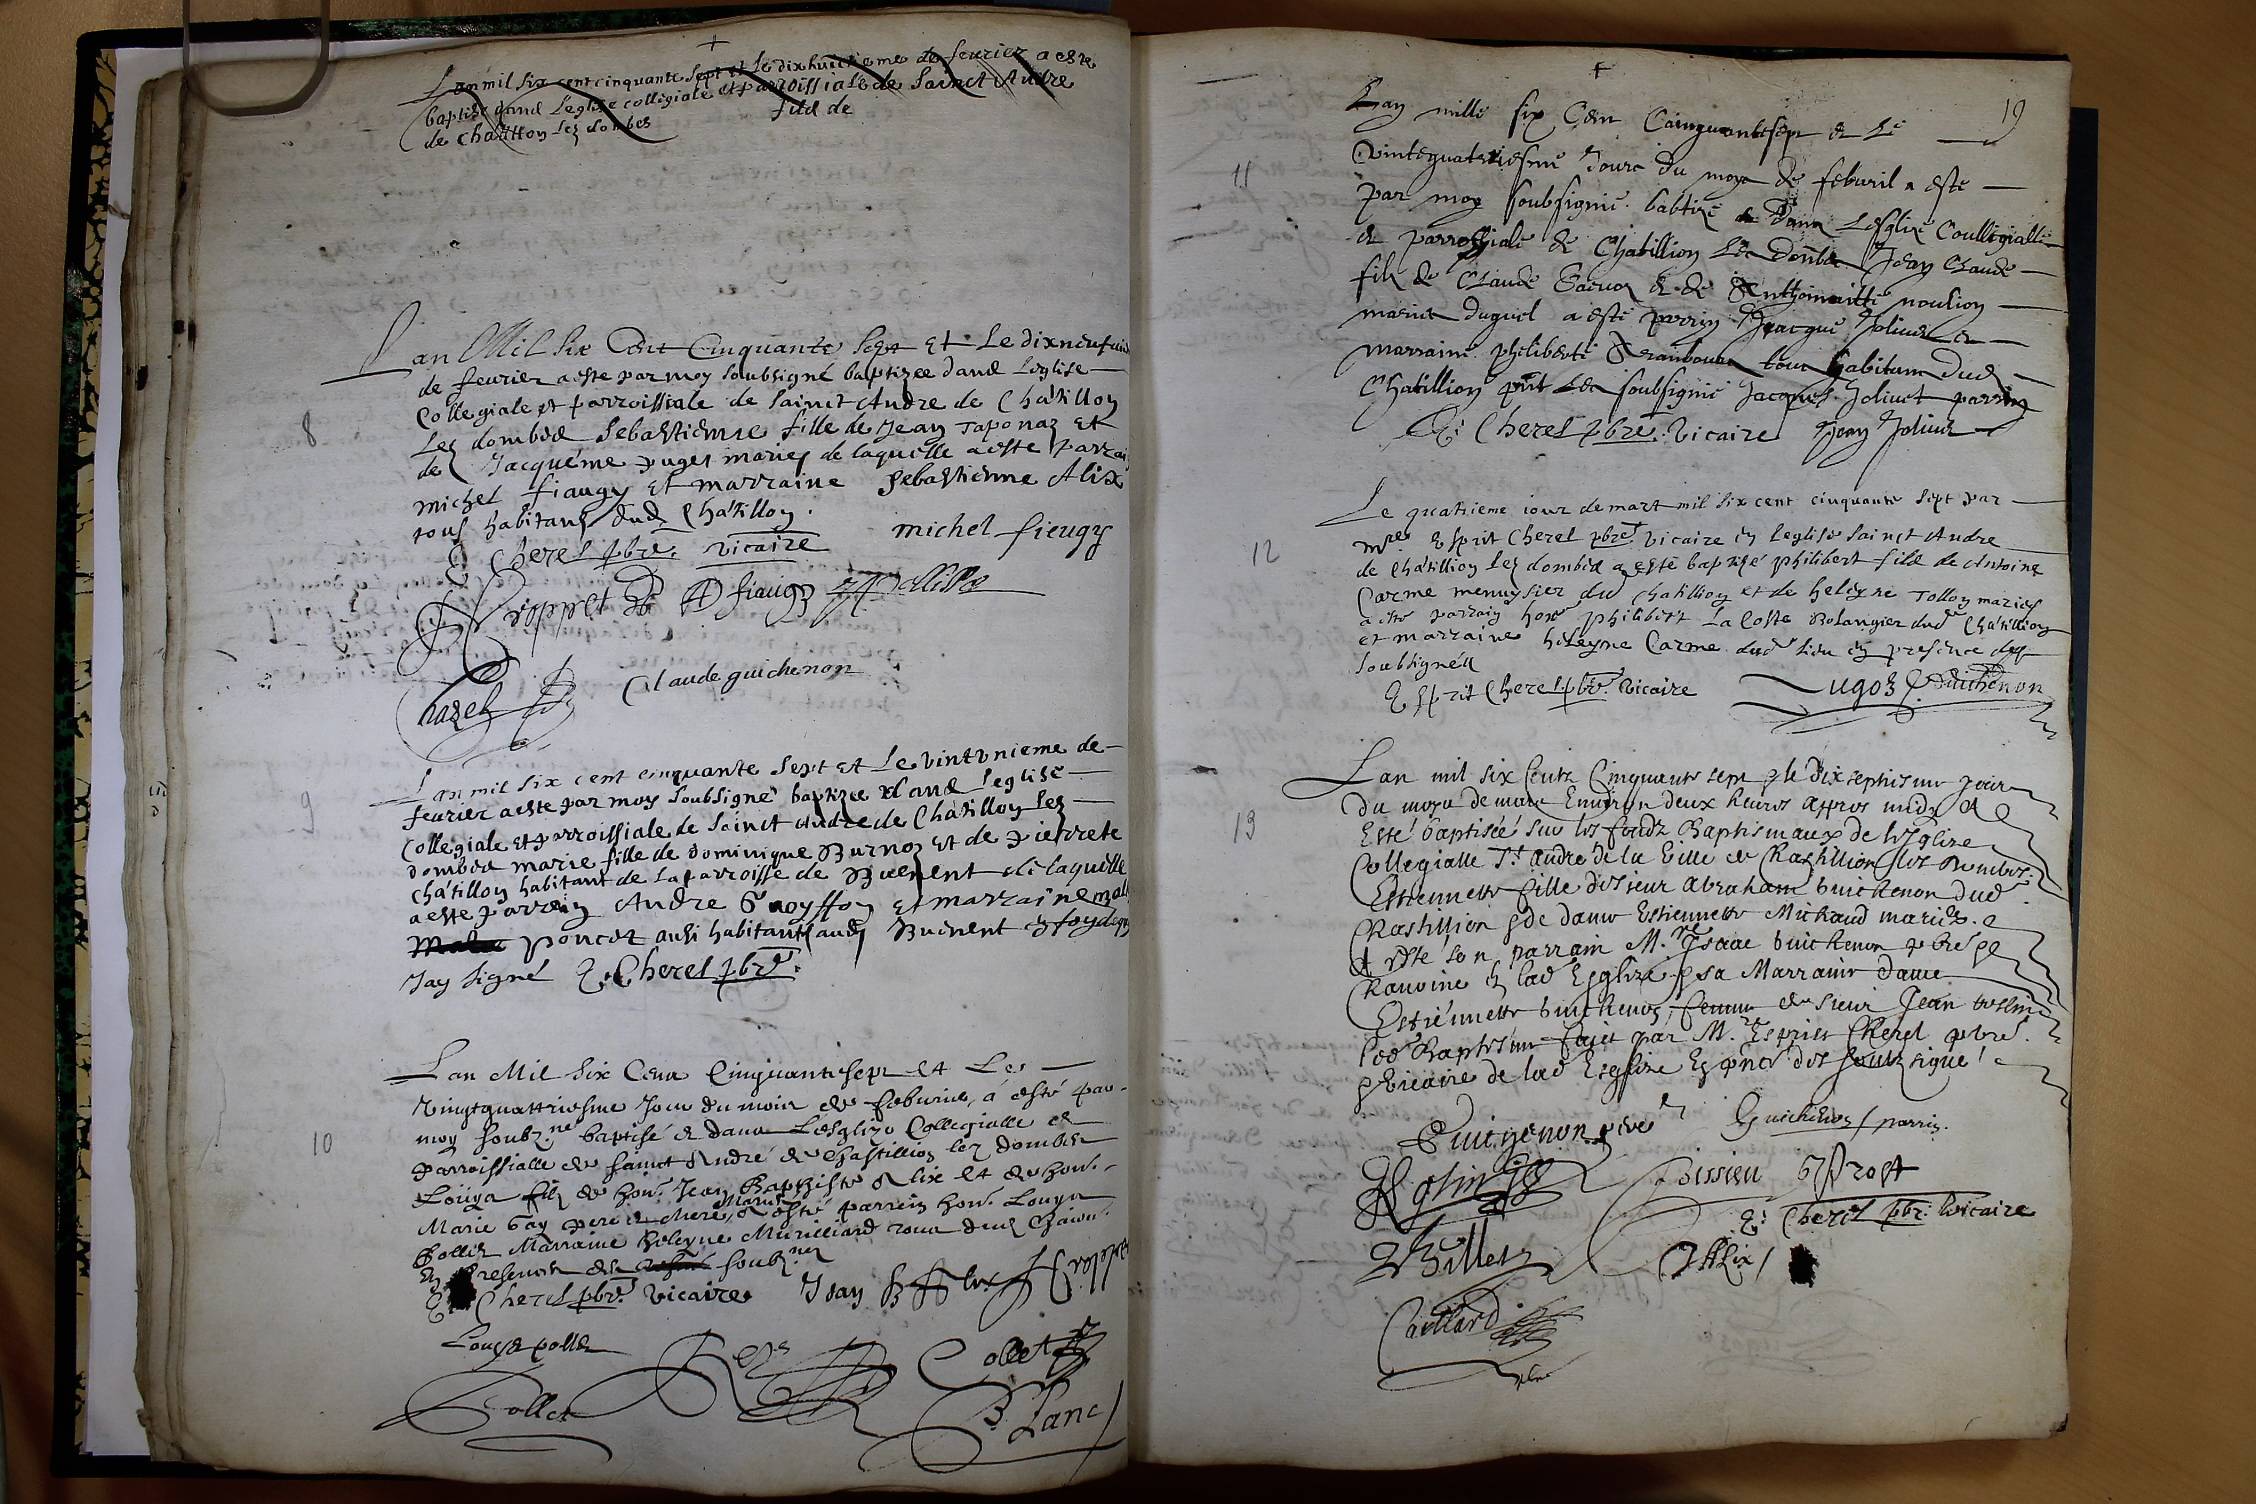 Lan mil six cent cinquante sept et le dixhuictieme de feurier a este
baptize dans leglise collegiale et parroissiale de Sainct Andre
de Chatillon les dombes filz de
Lan Mil six Cent Cinquante Sept Et Le dixneufui
de feurier a este par moy soubsigné baptizee dans Leglise
Collegiale et parroissiale de Sainct Andre de Chatillon
Les dombes Sebastienne fille de Jean Taponaz Et
de Jacqueme Puget maries de laquelle a este Parrai
michel fiaugy Et marraine Sebastienne Alix
tous habitans dud Chatillon.
8
E Cherel pbre. vicaire michel fieugy
Proppret
Chazel Claude guichenon
Lan mil six cent cinquante sept et Le vintunieme de
feurier a este par moy soubsigne baptizee dans leglise
Collegiale et parroissiale de Sainct Andre de Chatillon les
9
dombes marie fille de dominique Burnoz Et de Pierrete
chatillon habitant de la parroisse de Buenent de laquelle
a este parrein Andre Et marraine
poncet ausi habitant aud Buenent
Jay signé E. Cherel pbre.
Lan Mil Six Cens Cinquante sept et Le
Vingtquattriesme Jour du mois de feburier, a esté par
moy soubz.né baptisé et dans Lesglize Collegialle et
10
parroissialle de sainct Andre de Chastillion lez dombes
Louys filz de hon. Jean Baptiste Alix et de hon.
Marie Gay pere et mere, maries a esté parrein hon. Louys
Pollet Marraine Heleyne
En Presence des soubz.nes
E Cherel pbre. Vicaire Jean B Alix
Louys pollet
Pollet Collet
B Lanc
19
Lan mille six Cent Cainquantesept et Le
vintequatriesme Jour du moys de feburil a este
11
par moy soubsignie babtize dans Lesglize Coullegialle
et parrossiale de Chatillion Les Donbe Jean Claude
filz de Claude et de Anthoinaitte
maries duquel a esté perrin Jacque Joliuet et
marraine philiberte tous habitans dud
Chatillion pnt Les soubsignie Jacques Joliuet parrin
E: Cherel pbre. Vicaire Jean Joliuet
Le quatrieme iour de mart mil six cent cinquante sept par
12
mre. Esprit Cherel pbre. Vicaire en leglise Sainct Andre
de Chatillion les dombes a este baptizé philibert filz de Antoine
Carme menuysier du Chatillion et de heleyne Tollon maries
a esté parrain hon philibert La Coste Bolangier dud Chatillion
et marraine heleyne Carme dud Lieu en presence des
soubsignés
Esprit Cherel pbr. Vicaire Lugoz Guichenon
Lan mil six Centz Cinquante sept & le dix septiesme jour
du moys de mars Enuiron deux heures appres midy A
13
Esté baptisée sur les fondz Baptismaux de lesglize
Collegialle St. Andre de la Ville de Chastillion les Dombes.
Estiennette fille du sieur Abraham Guichenon dud
Chastillion & de dame Estiennette Michaud maries.
A esté son parrain M.re Isaac Guichenon pbre &
Chanoine en lad Esglize & sa Marraine dame
Estiennette Guichenon, femme du sieur Jean
led Baptesme fait par M.re Esprit Cherel pbre.
& Vicaire de lad Esglize En pnce des soubz signé
Guichenon pere Guichenon / parrin.
Boissieu Prost
E: Cherel pbr: Vicaire
Billet Alix /
Caillard